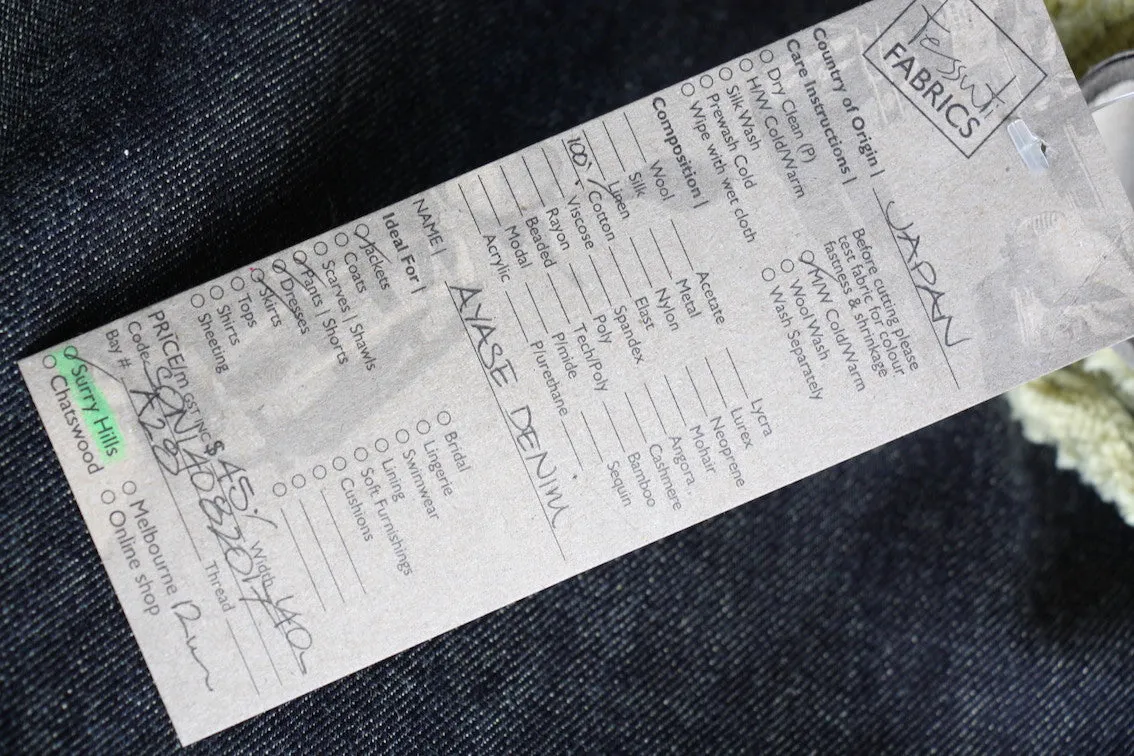 Tessuti
FABRICS
Country of Origin | JAPAN
Care Instructions |
Dry Clean (P)
H/W Cold/Warm
Silk Wash
Prewash Cold
Wipe with wet cloth
Before cutting please
test fabric for colour
fastness & shrinkage
M/W Cold/Warm
Wool Wash
Wash Separately
Composition |
Wool
Silk
Linen
100% Cotton
Viscose
Rayon
Beaded
Modal
Acrylic
Acetate
Metal
Nylon
Elast
Spandex
Poly
Tech/Poly
P/mide
P/urethane
Lycra
Lurex
Neoprene
Mohair
Angora
Cashmere
Bamboo
Sequin
NAME | AYASE DENIM
Ideal For |
Jackets
Coats
Scarves | Shawls
Pants | Shorts
Dresses
Skirts
Tops
Shirts
Sheeting
Bridal
Lingerie
Swimwear
Lining
Soft Furnishings
Cushions
PRICE/m GST INC $ 45 Width 140
Code
Bay # A28 Thread
Surry Hills
Chatswood
Melbourne
Online shop